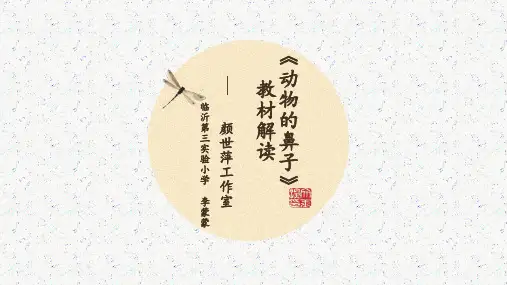 《动物的鼻子》
教材解读
——颜世萍工作室
临沂第三实验小学 李蒙蒙